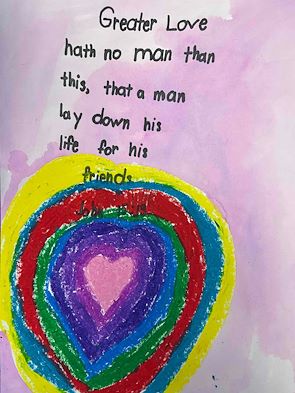 Greater Love
hath no man than
this, that a man
lay down his
life for his
friends